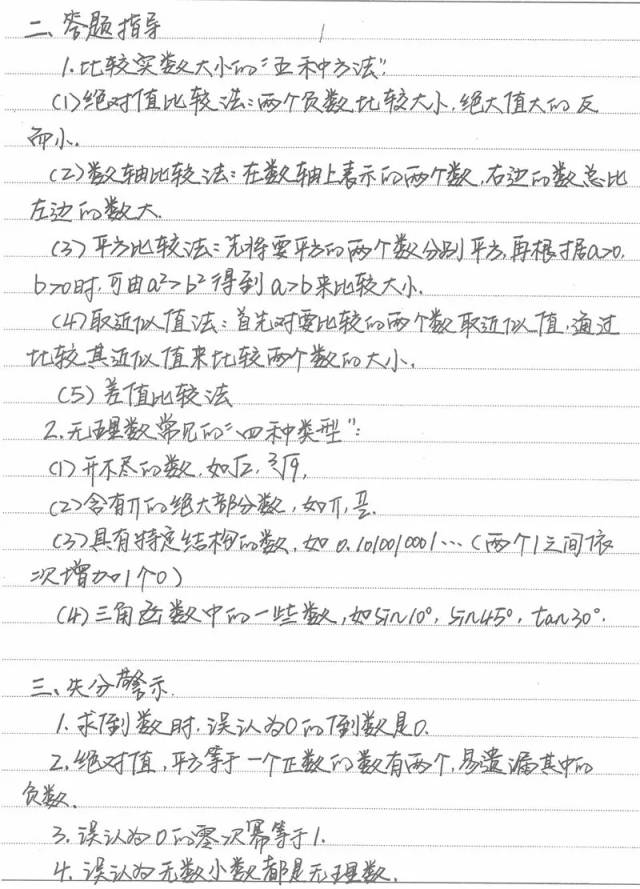 二、答题指导
1.比较实数大小的"五种方法":
(1)绝对值比较法:两个负数比较大小,绝大值大的反
而小.
(2)数轴比较法:在数轴上表示的两个数,右边的数总比
左边的数大.
(3)平方比较法:先将要平方的两个数分别平方,再根据a>0,
b>0时,可由a²>b²得到a>b来比较大小.
(4)取近似值法:首先对要比较的两个数取近似值,通过
比较其近似值来比较两个数的大小.
(5)差值比较法
2.无理数常见的"四种类型":
(1)开不尽的数,如√2,³√9,
(2)含有π的绝大部分数,如π,π/2.
(3)具有特定结构的数,如0.1010010001…(两个1之间依
次增加1个0)
(4)三角函数中的一些数,如sin10°,sin45°,tan30°.
三、失分警示.
1.求倒数时,误认为0的倒数是0.
2.绝对值,平方等于一个正数的数有两个,易遗漏其中的
负数.
3.误认为0的零次幂等于1.
4.误认为无数小数都是无理数.